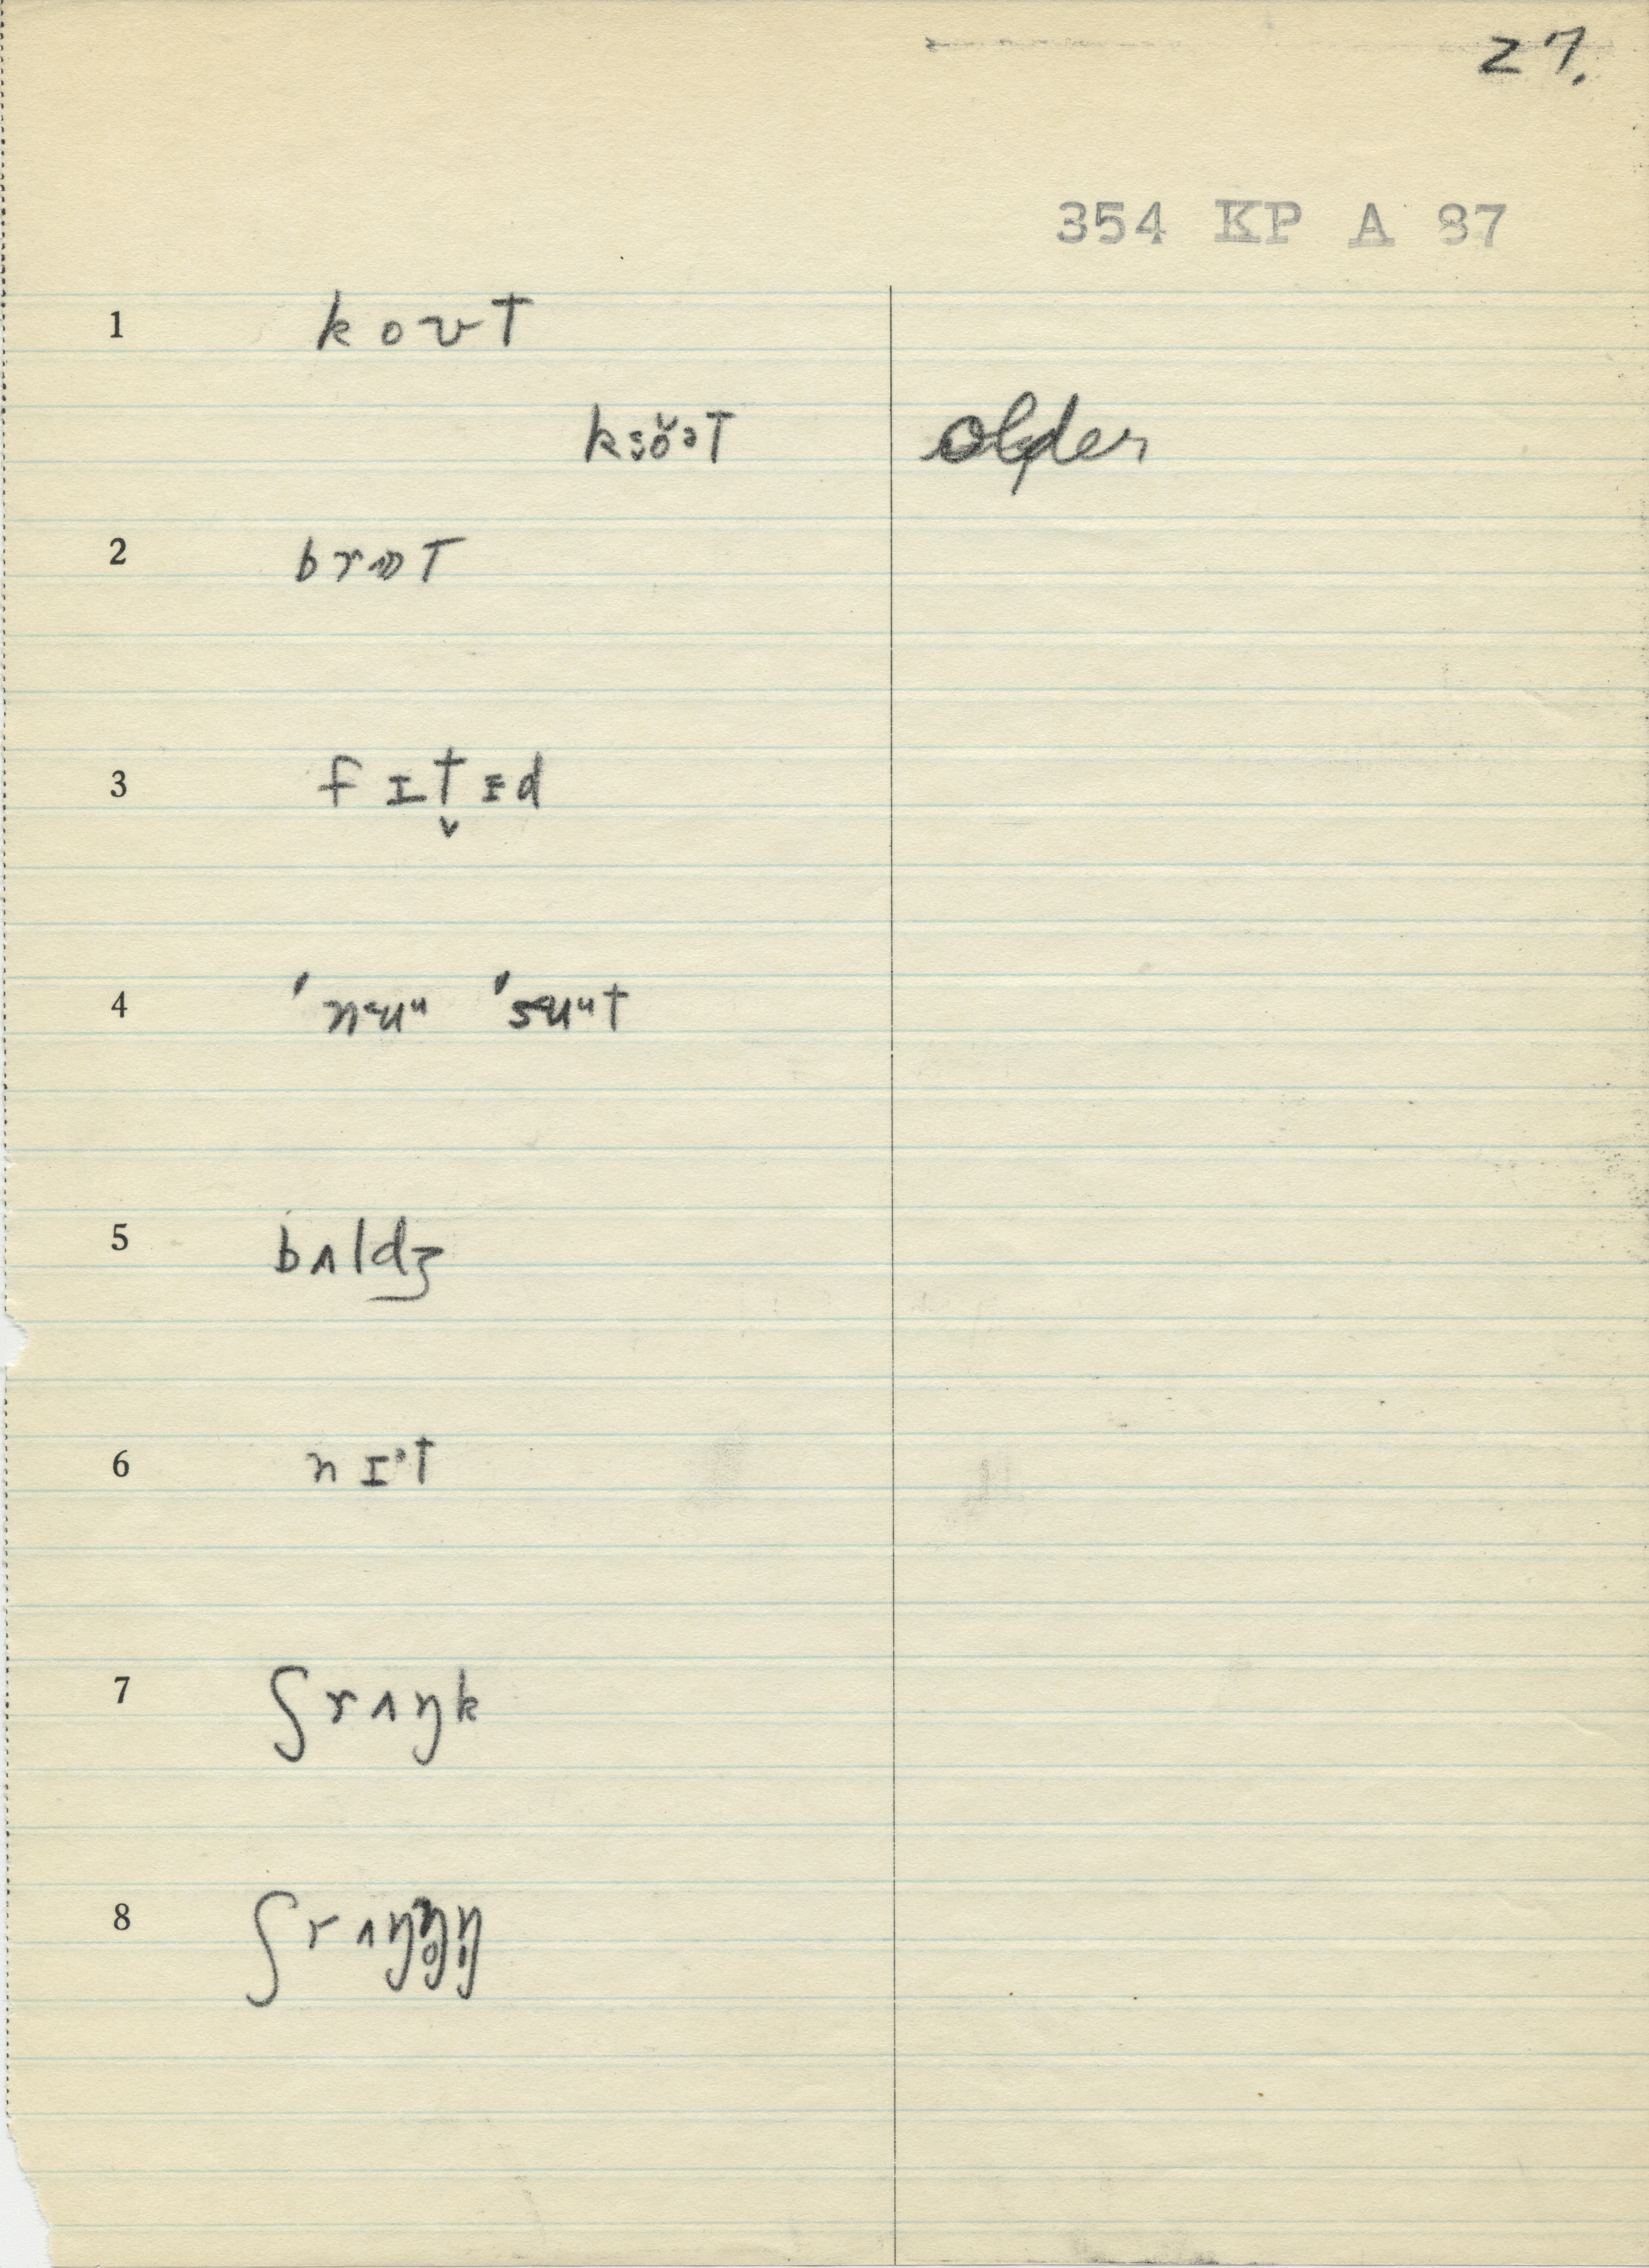 27.
354 KP A 87
1 koʊT
kɜŏɜT older
2 br
3 fɪt̬ɪd
4 ˈnɜuᵘ ˈsɜuᵘt
5 bʌldʒ
6 nɪᵊt
7 ʃrʌŋk
8 ʃrʌŋ